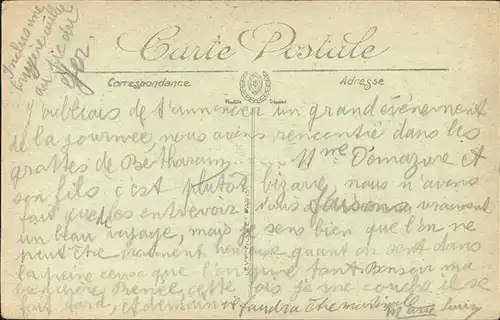 Inclus une
bruyère cueillie
au Pic du
Jer
Carte Postale
Correspondance
Adresse
J'oubliais de t'annoncer un grand évènement
de la journée, nous avons rencontré dans les
grottes de Bétharam Mme Domazure et
son fils c'est plutôt bizarre, nous n'avons
fait que les entrevoir nous faisons vraiment
un beau voyage, mais je sens bien que l'on ne
peut être vraiment heureuse quant on sent dans
la peine ceuse que l'on aime tant Bonsoir ma
Renée cette fois je me couche il se
fait tard, et demain il faudra être matinale
Marie Louise